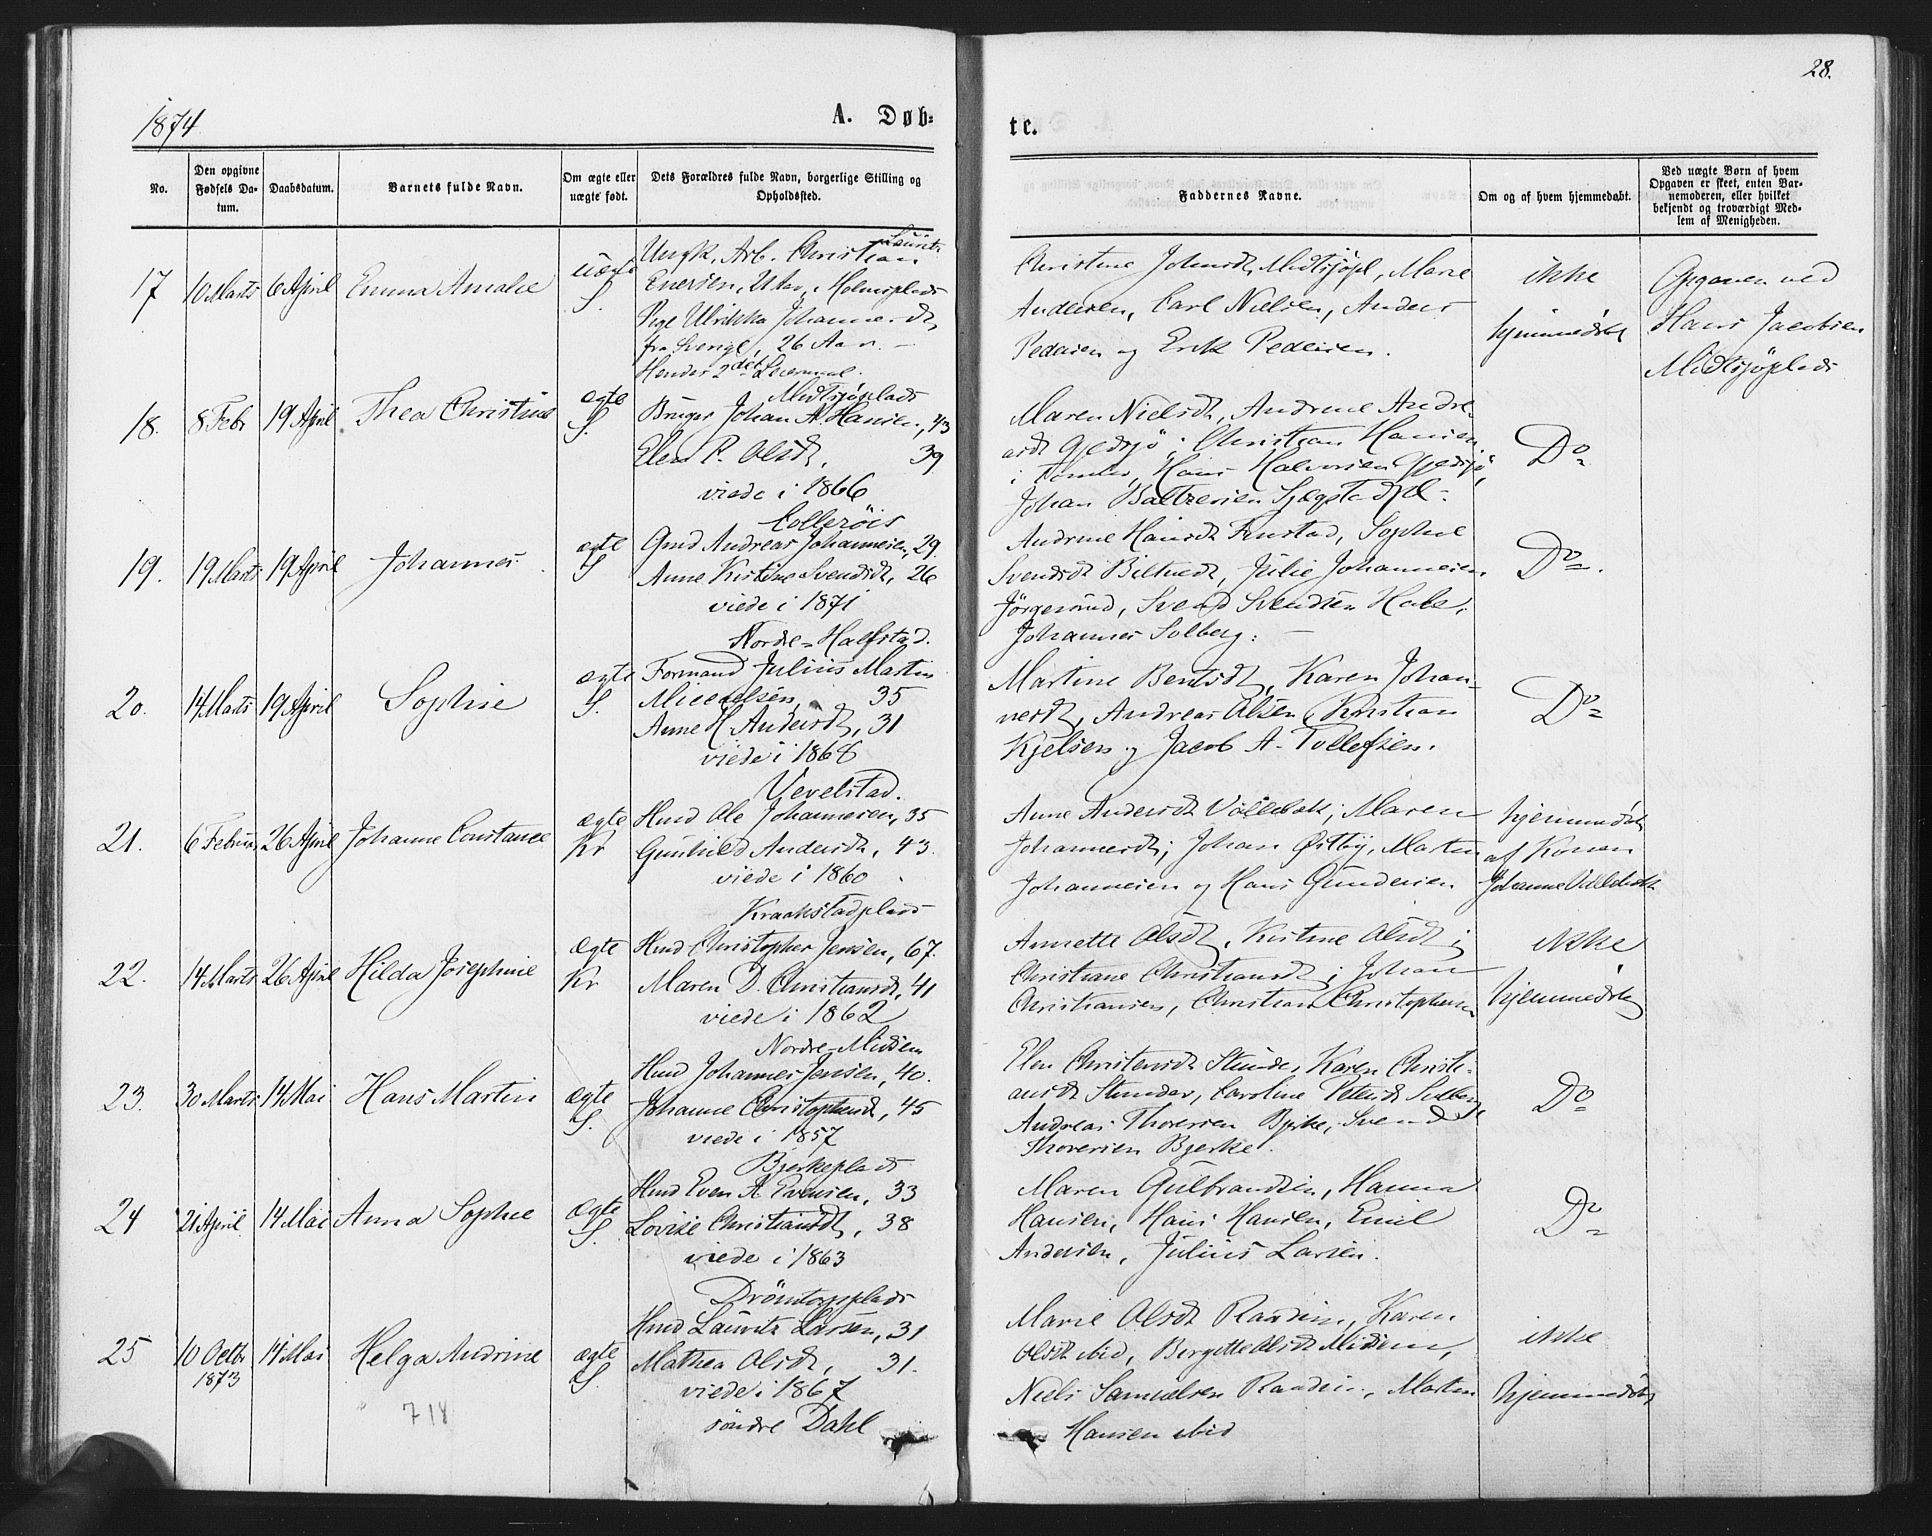 28.
1874
A. Døb-
te.
No.
Den opgivne Fødsels Da-tum.
Daabsdatum.
Barnets fulde Navn.
Om ægte eller uægte født.
Dets Forældres fulde Navn, borgerlige Stilling og Opholdssted.
Faddernes Navne.
Om og af hvem hjemmedøbt.
Ved uægte Børn af hvem Opgaven er skeet, enten Bar-nemoderen, eller hvilket bekjendt og troværdigt Med-lem af Menigheden.
17 10 Marts 6 April Emma Amalie uægte S.
Ungk. Arb. Christian Lauritz
Enersen, 21 Aar, Holmsplads
Pige Ulrikka Johannesdt,
26 Aar. —
Hendes 2det Leiermaal.
Christine Johnsdt, Midtsjöpl, Marie
Andersen, Carl Nielsen, Anders
Pedersen og Erik Pedersen.
ikke
hjemmedöbt
Opgaven ved
Hans Jacobsen
Midtsjöplads
18. 8 Febr 19 April Thea Christine ægte S.
Midtsjøplads
Bruger Johan A. Hansen, 43
Elen P. Olsdt, 39
viede i 1866
Maren Nielsdt, Andrine Andre-
asdt Gjedsjö, Christian Hansen
i Tomter, Hans Halvorsen Gjedsjö,
Johan Baltzersen
Do
19. 19 Marts 19 April Johannes ægte S
Gmd Andreas Johannesen, 29.
Anne Kristine Svendsdt, 26
viede i 1871
Nordre-Halfstad.
Andrine Hansdt Finstad, Sophie
Svendsdt Johannesen
Svend Svendsen
Johannes Solberg. —
Do.
20. 14 Marts 19 April Sophie ægte S.
Formand Julius Martin
35
Anne H. Andersdt, 31
viede i 1868
Vevelstad.
Martine Berntsdt, Karen Johan-
nesdt, Andreas Olsen, Kristian
Kjelsen og Jacob A. Tollefsen.
Do
21. 6 Februar 26 April Johanne Constance ægte Kr
Hmd Ole Johannesen, 35
Gunhild Andersdt, 43.
viede i 1860
Kraakstadplads
Anne Andersdt Maren
Johannesdt; Johan Østby, Martin
Johannesen og Hans Gundersen
hjemmedöbt
af Konen
Johanne
22. 14 Marts 26 April Hilda Josephine ægte Kr
Hmd Christopher Jensen, 67.
Maren D. Christiansdt, 41
viede i 1862
Nordre-Midsem
Annette Olsdt, Kristine Olsdt;
Christiane Christiansdt; Johan
Christiansen, Christian Christophersen
ikke
hjemmedöbt
23. 30 Marts 14 Mai Hans Martin ægte S.
Hmd Johannes Jensen, 40.
Johanne Christophersdt, 45
viede i 1857
Bjerkeplads
Elen Christensdt Karen Christi-
ansdt Caroline Petersdt Solberg
Andreas Thoresen Bjerke, Svend
Thoresen Bjerke.
Do
24 21 April 14 Mai Anna Sophie ægte S.
Hmd Even A Evensen, 33
Lovise Christiansdt, 38
viede i 1863
Drömtorpplads
Maren Gulbrandsen, Hanna
Hansen, Hans Hansen, Emil
Andersen, Julius Larsen.
Do
25 10 Octbr 1873 14 Mai Helga Andrine ægte S.
Hmd Lauritz Larsen, 31
Mathea Olsdt, 31.
viede i 1867
söndre Dahl
Marie Olsdt Karen
Olsdt ibid, Birgitte Olsdt Midsem,
Niels Samuelsen Martin
Hansen ibid
ikke
hjemmedöbt
718